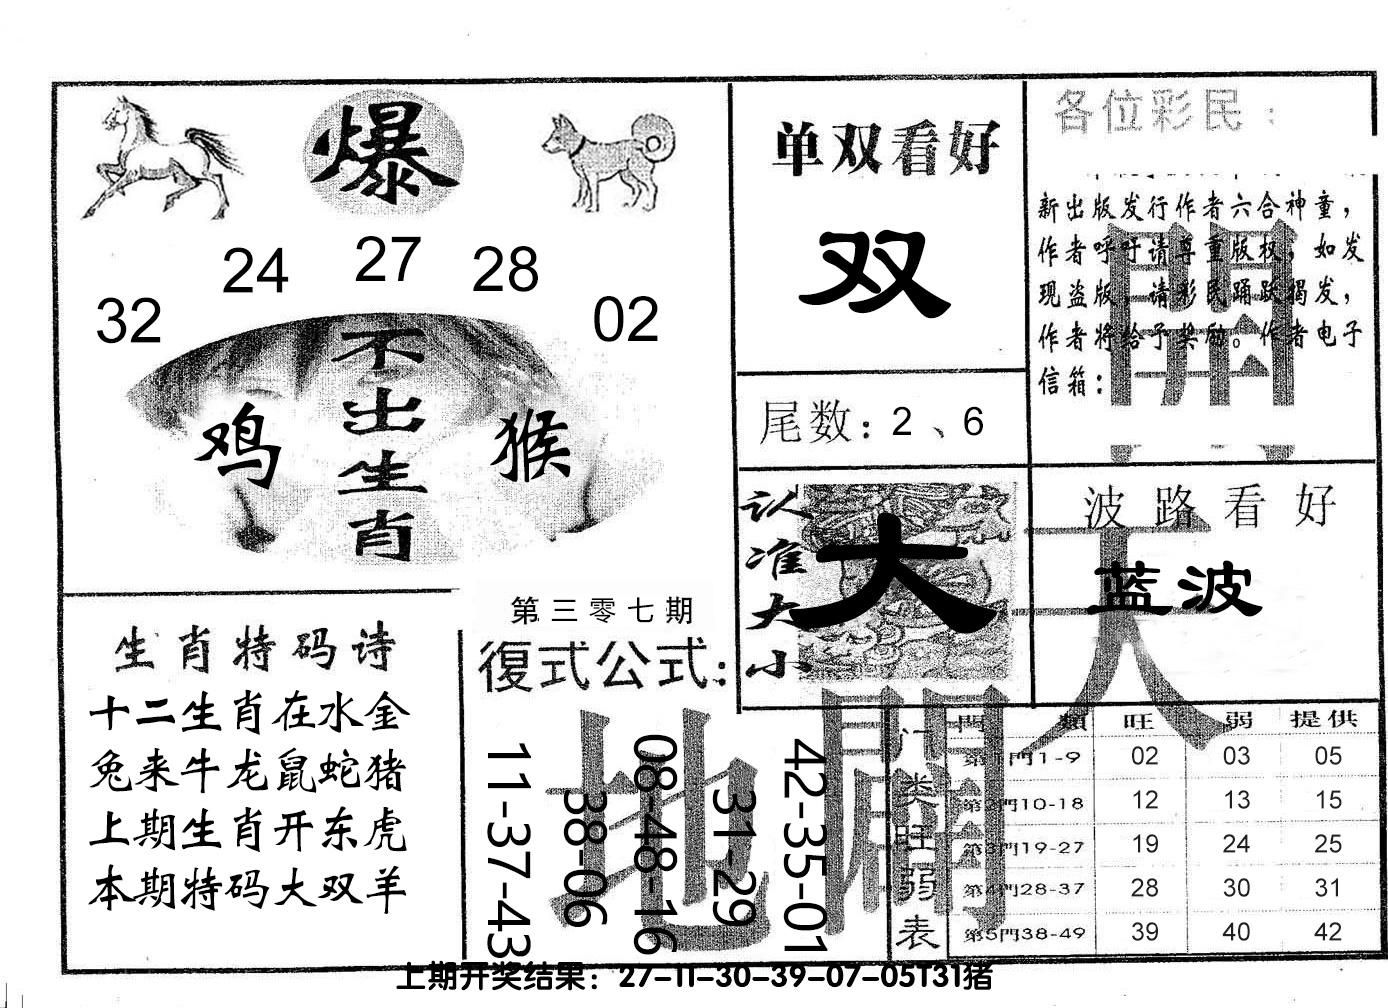 爆
24 27 28
32 02
不出生肖
鸡 猴
单双看好
双
尾数：2、6
各位彩民：
新出版发行作者六合神童，
作者呼吁请尊重版权，如发
现盗版，请彩民踊跃揭发，
作者将给予奖励。作者电子
信箱：
認准大小
大
波路看好
蓝波
生肖特码诗
十二生肖在水金
兔来牛龙鼠蛇猪
上期生肖开东虎
本期特码大双羊
第三零七期
復式公式：
11-37-43
38-06
08-48-16
31-29
42-35-01
天
開
地
門类旺弱表
門類 旺 弱 提供
第1門1-9 02 03 05
第2門10-18 12 13 15
第3門19-27 19 24 25
第4門28-37 28 30 31
第5門38-49 39 40 42
上期开奖结果：27-11-30-39-07-05T31猪